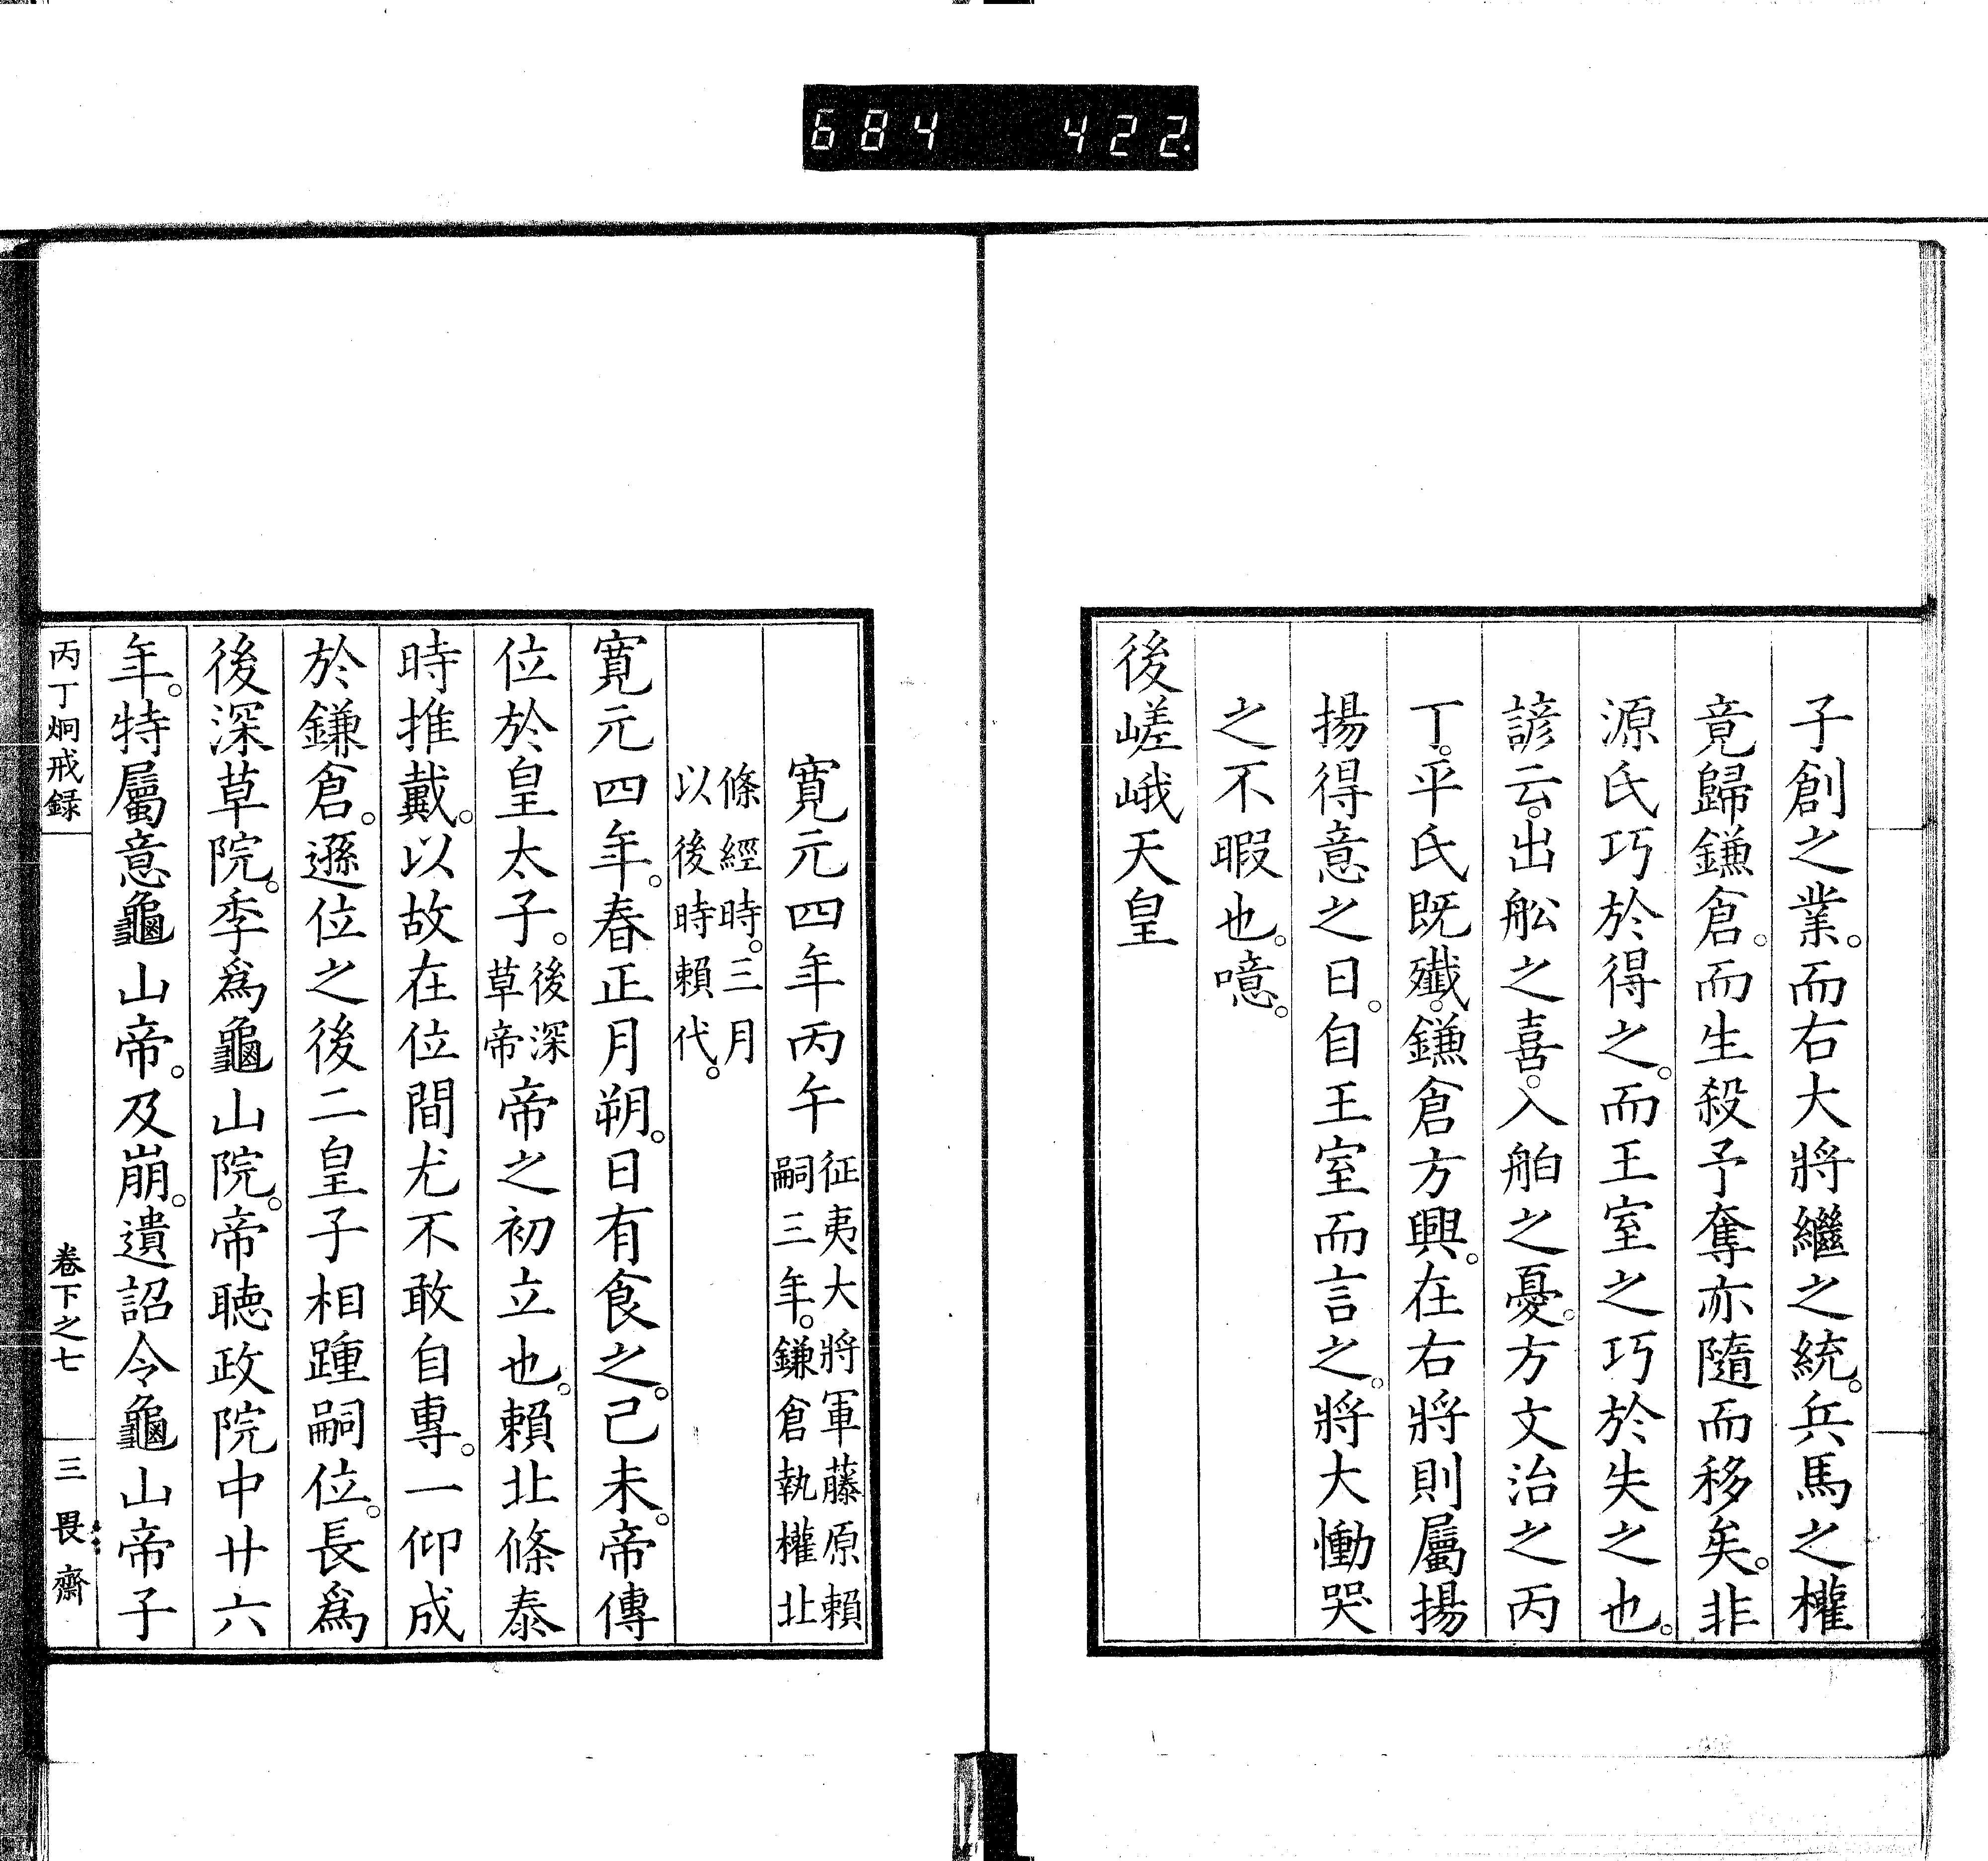 684 422
子創之業。而右大將繼之統。兵馬之權
竟歸鎌倉。而生殺予奪亦隨而移矣。非
源氏巧於得之。而王室之巧於失之也。
諺云。出舩之喜。入舶之憂。方文治之丙
丁。平氏既殲。鎌倉方興。在右將則屬揚
揚得意之日。自王室而言之。將大慟哭
之不暇也。噫。
後嵯峨天皇
寛元四年丙午
征夷大將軍藤原賴
嗣三年。鎌倉執權北
條經時。三月
以後時賴代。
寛元四年。春正月朔。日有食之。己未。帝傳
位於皇太子。後深草帝帝之初立也。賴北條泰
時推戴。以故在位間尤不敢自專。一仰成
於鎌倉。遜位之後二皇子相踵嗣位。長爲
後深草院。季爲龜山院。帝聴政院中廿六
年。特屬意龜山帝。及崩。遺詔令龜山帝子
丙丁炯戒録 卷下之七 三畏齋